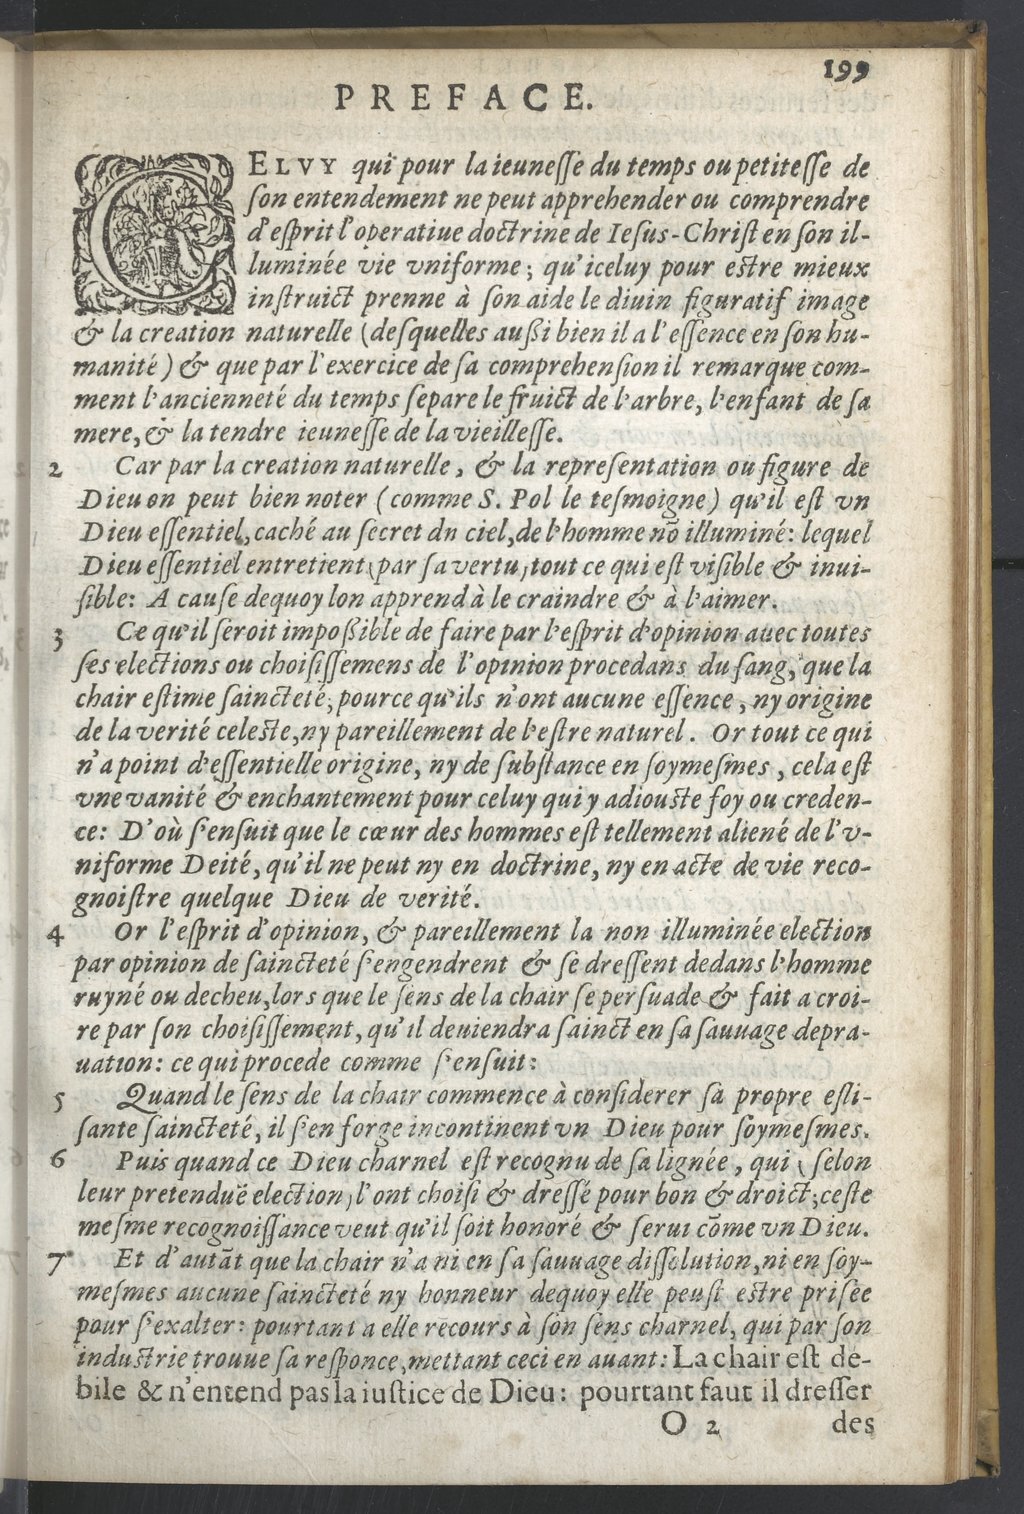 199
PREFACE.
CELVY qui pour la ieunesse du temps ou petitesse de
son entendement ne peut apprehender ou comprendre
d'esprit l'operatiue doctrine de Iesus-Christ en son il-
luminée vie vniforme; qu'iceluy pour estre mieux
instruict prenne à son aide le diuin figuratif image
& la creation naturelle (desquelles außi bien il a l'essence en son hu-
manité) & que par l'exercice de sa comprehension il remarque com-
ment l'ancienneté du temps separe le fruict de l'arbre, l'enfant de sa
mere, & la tendre ieunesse de la vieillesse.
2 Car par la creation naturelle, & la representation ou figure de
Dieu on peut bien noter (comme S. Pol le tesmoigne) qu'il est vn
Dieu essentiel, caché au secret dn ciel, de l'homme nō illuminé: lequel
Dieu essentiel entretient (par sa vertu) tout ce qui est visible & inui-
sible: A cause dequoy lon apprend à le craindre & à l'aimer.
3 Ce qu'il seroit impoßible de faire par l'esprit d'opinion auec toutes
ses elections ou choisissemens de l'opinion procedans du sang, que la
chair estime saincteté; pource qu'ils n'ont aucune essence, ny origine
de la verité celeste, ny pareillement de l'estre naturel. Or tout ce qui
n'a point d'essentielle origine, ny de substance en soymesmes, cela est
vne vanité & enchantement pour celuy qui y adiouste foy ou creden-
ce: D'où s'ensuit que le cœur des hommes est tellement aliené de l'v-
niforme Deité, qu'il ne peut ny en doctrine, ny en acte de vie reco-
gnoistre quelque Dieu de verité.
4 Or l'esprit d'opinion, & pareillement la non illuminée election
par opinion de saincteté s'engendrent & se dressent dedans l'homme
ruyné ou decheu, lors que le sens de la chair se persuade & fait a croi-
re par son choisissement, qu'il deuiendra sainct en sa sauuage depra-
uation: ce qui procede comme s'ensuit:
5 Quand le sens de la chair commence à considerer sa propre esli-
sante saincteté, il s'en forge incontinent vn Dieu pour soymesmes.
6 Puis quand ce Dieu charnel est recognu de sa lignée, qui (selon
leur pretenduë election) l'ont choisi & dressé pour bon & droict; ceste
mesme recognoissance veut qu'il soit honoré & serui cōme vn Dieu.
7 Et d'autāt que la chair n'a ni en sa sauuage dissolution, ni en soy-
mesmes aucune saincteté ny honneur dequoy elle peust estre prisée
pour s'exalter: pourtant a elle recours à son sens charnel, qui par son
industrie trouue sa responce, mettant ceci en auant: La chair est de-
bile & n'entend pas la iustice de Dieu: pourtant faut il dresser
O 2 des